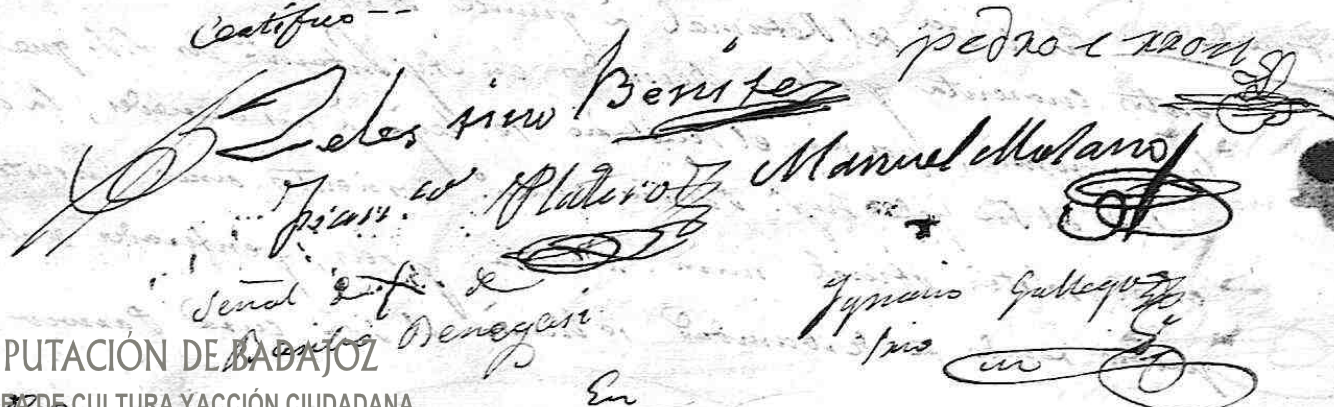 Certifico
Zelestino Benitez
pedro
Fran.co Platero
Manuel Molano
Señal de X de
Ygnacio Gallego
En
PUTACIÓN DE BADAJOZ
DE CULTURA Y ACCIÓN CIUDADANA